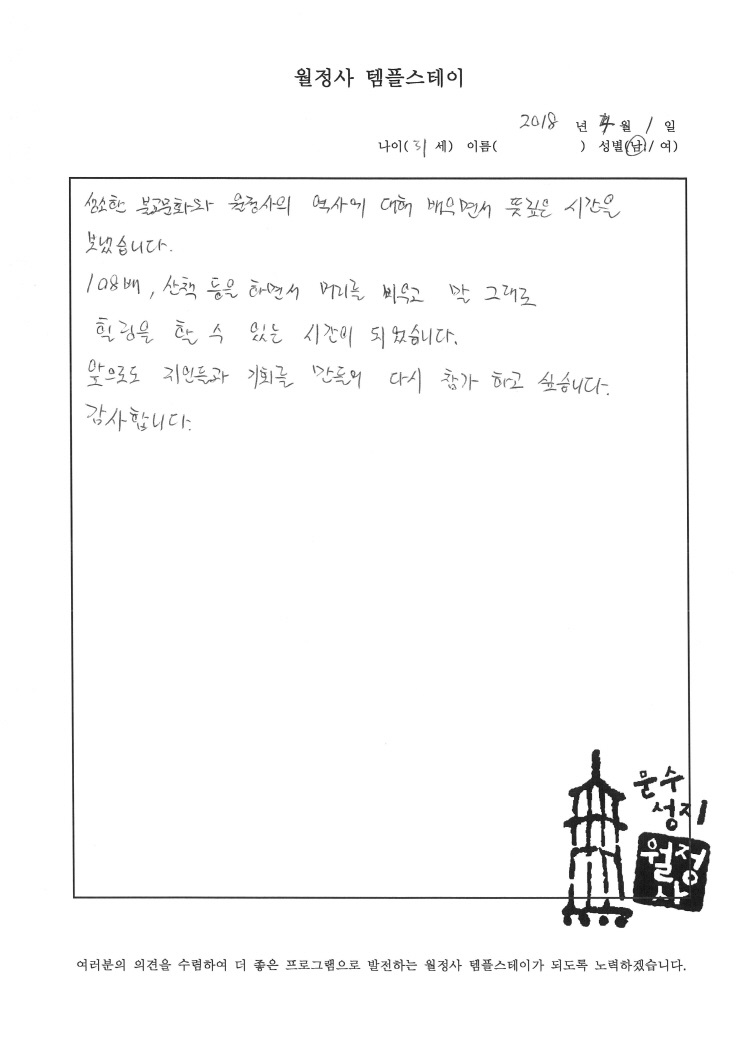 월정사 템플스테이
2018 년 월 1 일
나이( 31 세) 이름( ) 성별(남 / 여)
생소한 불교문화와 월정사의 역사에 대해 배우면서 뜻깊은 시간을
보냈습니다.
108배, 산책 등을 하면서 머리를 비우고 말 그대로
힐링을 할 수 있는 시간이 되었습니다.
앞으로도 지인들과 기회를 만들어 다시 참가 하고 싶습니다.
감사합니다.
문수
성지
월정
사
여러분의 의견을 수렴하여 더 좋은 프로그램으로 발전하는 월정사 템플스테이가 되도록 노력하겠습니다.